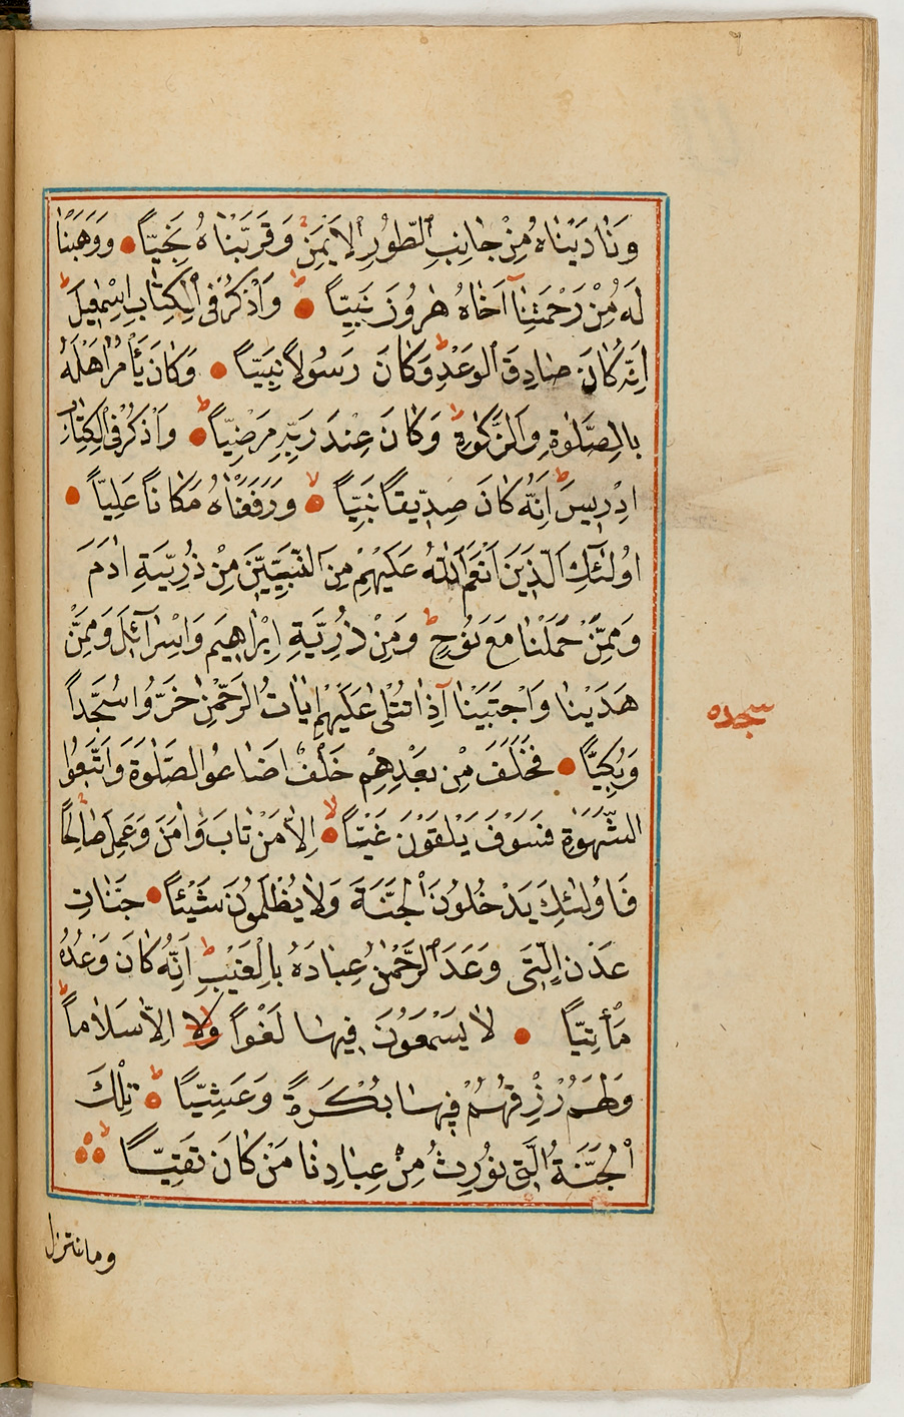 وَنَادَيْنَاهُ مِنْ جَانِبِ الطُّورِ الْاَيْمَنِ وَقَرَّبْنَاهُ نَجِيًّا وَوَهَبْنَا
لَهُ مِنْ رَحْمَتِنَآ اَخَاهُ هٰرُونَ نَبِيًّا وَاذْكُرْ فِى الْكِتَابِ اِسْمٰعِيلَ
اِنَّهُ كَانَ صَادِقَ الْوَعْدِ وَكَانَ رَسُولًا نَبِيًّا وَكَانَ يَأْمُرُ اَهْلَهُ
بِالصَّلٰوةِ وَالزَّكٰوةِ وَكَانَ عِنْدَ رَبِّهِ مَرْضِيًّا وَاذْكُرْ فِى الْكِتَابِ
اِدْرِيسَ اِنَّهُ كَانَ صِدِّيقًا نَبِيًّا وَرَفَعْنَاهُ مَكَانًا عَلِيًّا
اُولٰٓئِكَ الَّذِينَ اَنْعَمَ اللّٰهُ عَلَيْهِمْ مِنَ النَّبِيِّينَ مِنْ ذُرِّيَّةِ اٰدَمَ
وَمِمَّنْ حَمَلْنَا مَعَ نُوحٍ وَمِنْ ذُرِّيَّةِ اِبْرٰهِيمَ وَاِسْرَآئِلَ وَمِمَّنْ
هَدَيْنَا وَاجْتَبَيْنَا اِذَا تُتْلٰى عَلَيْهِمْ اٰيَاتُ الرَّحْمٰنِ خَرُّوا سُجَّدًا
سجده
وَبُكِيًّا فَخَلَفَ مِنْ بَعْدِهِمْ خَلْفٌ اَضَاعُوا الصَّلٰوةَ وَاتَّبَعُوا
الشَّهَوٰةِ فَسَوْفَ يَلْقَوْنَ غَيًّا اِلَّا مَنْ تَابَ وَاٰمَنَ وَعَمِلَ صَالِحًا
فَاُولٰٓئِكَ يَدْخُلُونَ الْجَنَّةَ وَلَا يُظْلَمُونَ شَيْئًا جَنَّاتِ
عَدْنٍ الَّتِى وَعَدَ الرَّحْمٰنُ عِبَادَهُ بِالْغَيْبِ اِنَّهُ كَانَ وَعْدُهُ
مَأْتِيًّا لَا يَسْمَعُونَ فِيهَا لَغْوًا وَلَا اِلَّا سَلَامًا
وَلَهُمْ رِزْقُهُمْ فِيهَا بُكْرَةً وَعَشِيًّا تِلْكَ
الْجَنَّةُ الَّتِى نُورِثُ مِنْ عِبَادِنَا مَنْ كَانَ تَقِيًّا
وما نتنزل